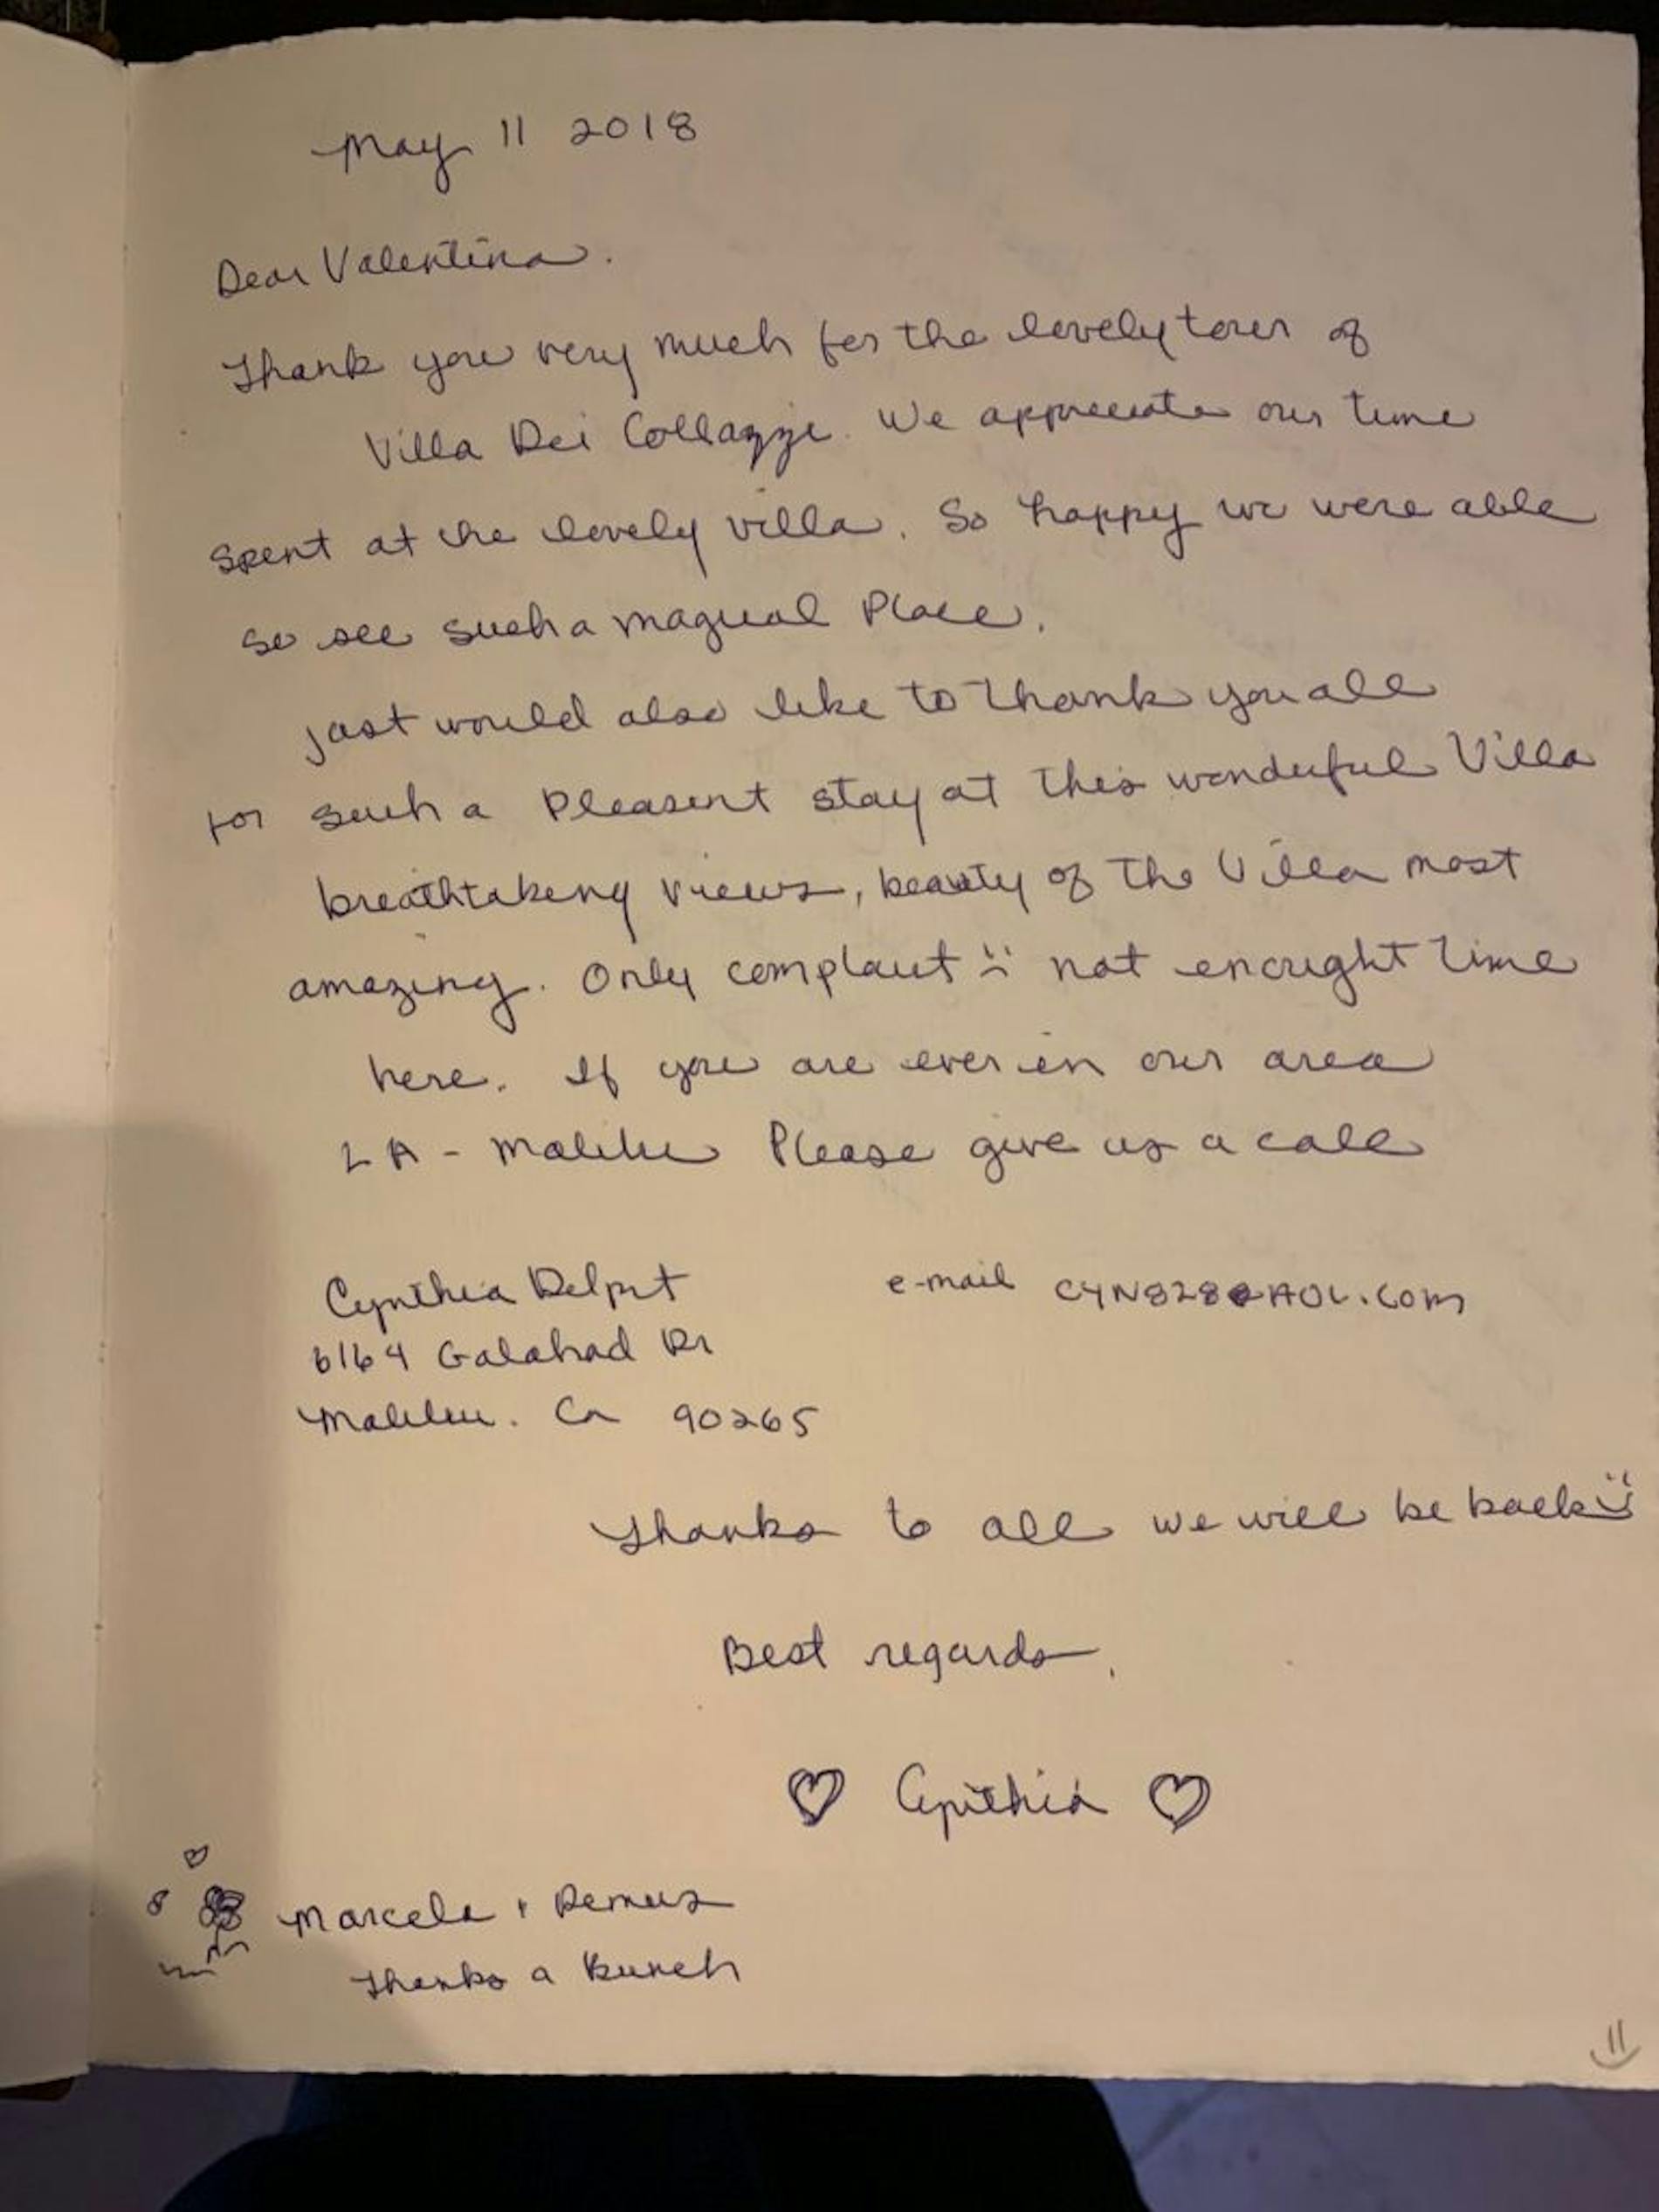 May 11 2018
Dear Valentina.
Thank you very much for the lovely tour of
Villa Dei Collazzi. We appreciate our time
spent at the lovely villa. So happy we were able
so see such a magical Place.
Just would also like to thank you all
for such a Pleasent stay at this wonderful Villa
breathtaking views, beauty of the Villa most
amazing. Only complaint :( not enought time
here. If you are ever in our area
LA - Malibu Please give us a call
Cynthia Delpit e-mail CYN828@AOL.COM
6164 Galahad Dr
Malibu. Ca 90265
Thanks to all we will be back :)
Best regards,
♡ Cynthia ♡
Marcela + Remus
Thanks a Bunch